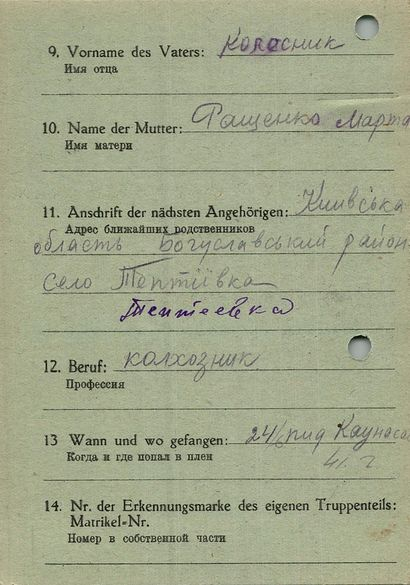 9. Vorname des Vaters: Колесник
Имя отца
10. Name der Mutter: Гащенко Марта
Имя матери
11. Anschrift der nächsten Angehörigen: Київська
Адрес ближайших родственников
область Богуславський район
село Тептіївка
Тептеевка
12. Beruf: колхозник
Профессия
13 Wann und wo gefangen: 24/6 пид Каунасом
Когда и где попал в плен 41. г
14. Nr. der Erkennungsmarke des eigenen Truppenteils:
Matrikel=Nr.
Номер в собственной части